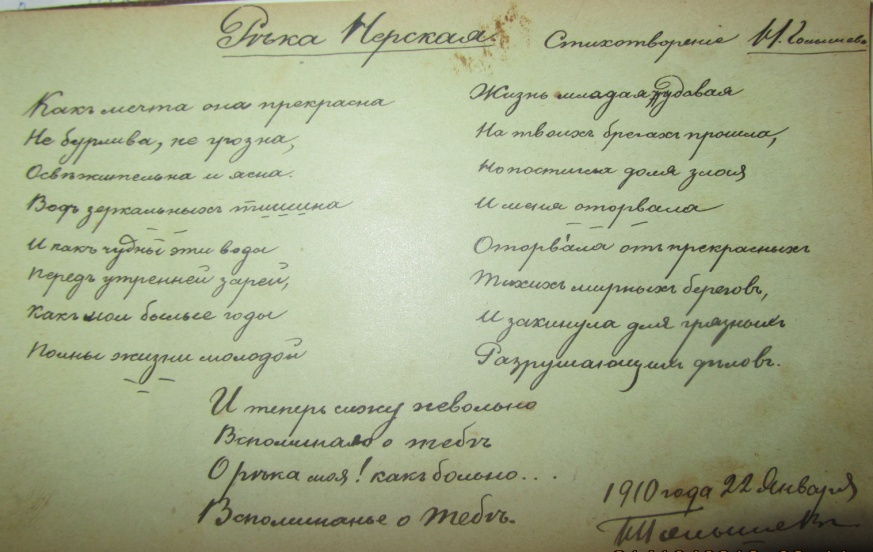 Рѣчка Нерская.
Стихотворенiе И.
Какъ мечта она прекрасна
Не бурлива, не грозна,
Освѣжительна и ясна.
Водъ зеркальныхъ тишина
И какъ чудны эти воды
Передъ утренней зарей,
Какъ мои былые годы
Полны жизни молодой
Жизнь младая
На твоихъ брегахъ прошла,
Но постигла доля злая
И меня оторвала
Оторвала отъ прекрасныхъ
Тихихъ мирныхъ береговъ,
И закинула для грязныхъ
Разрушающихъ
И теперь сижу невольно
Вспоминаю о тебѣ
О рѣчка моя! какъ больно...
Вспоминанье о тебѣ.
1910 года 22 Января